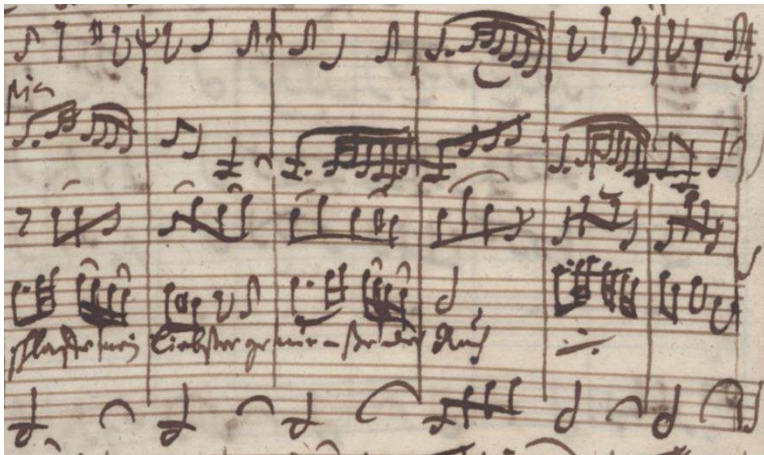 pia
Schlafe mein Liebster ge nie - ße der Ruh